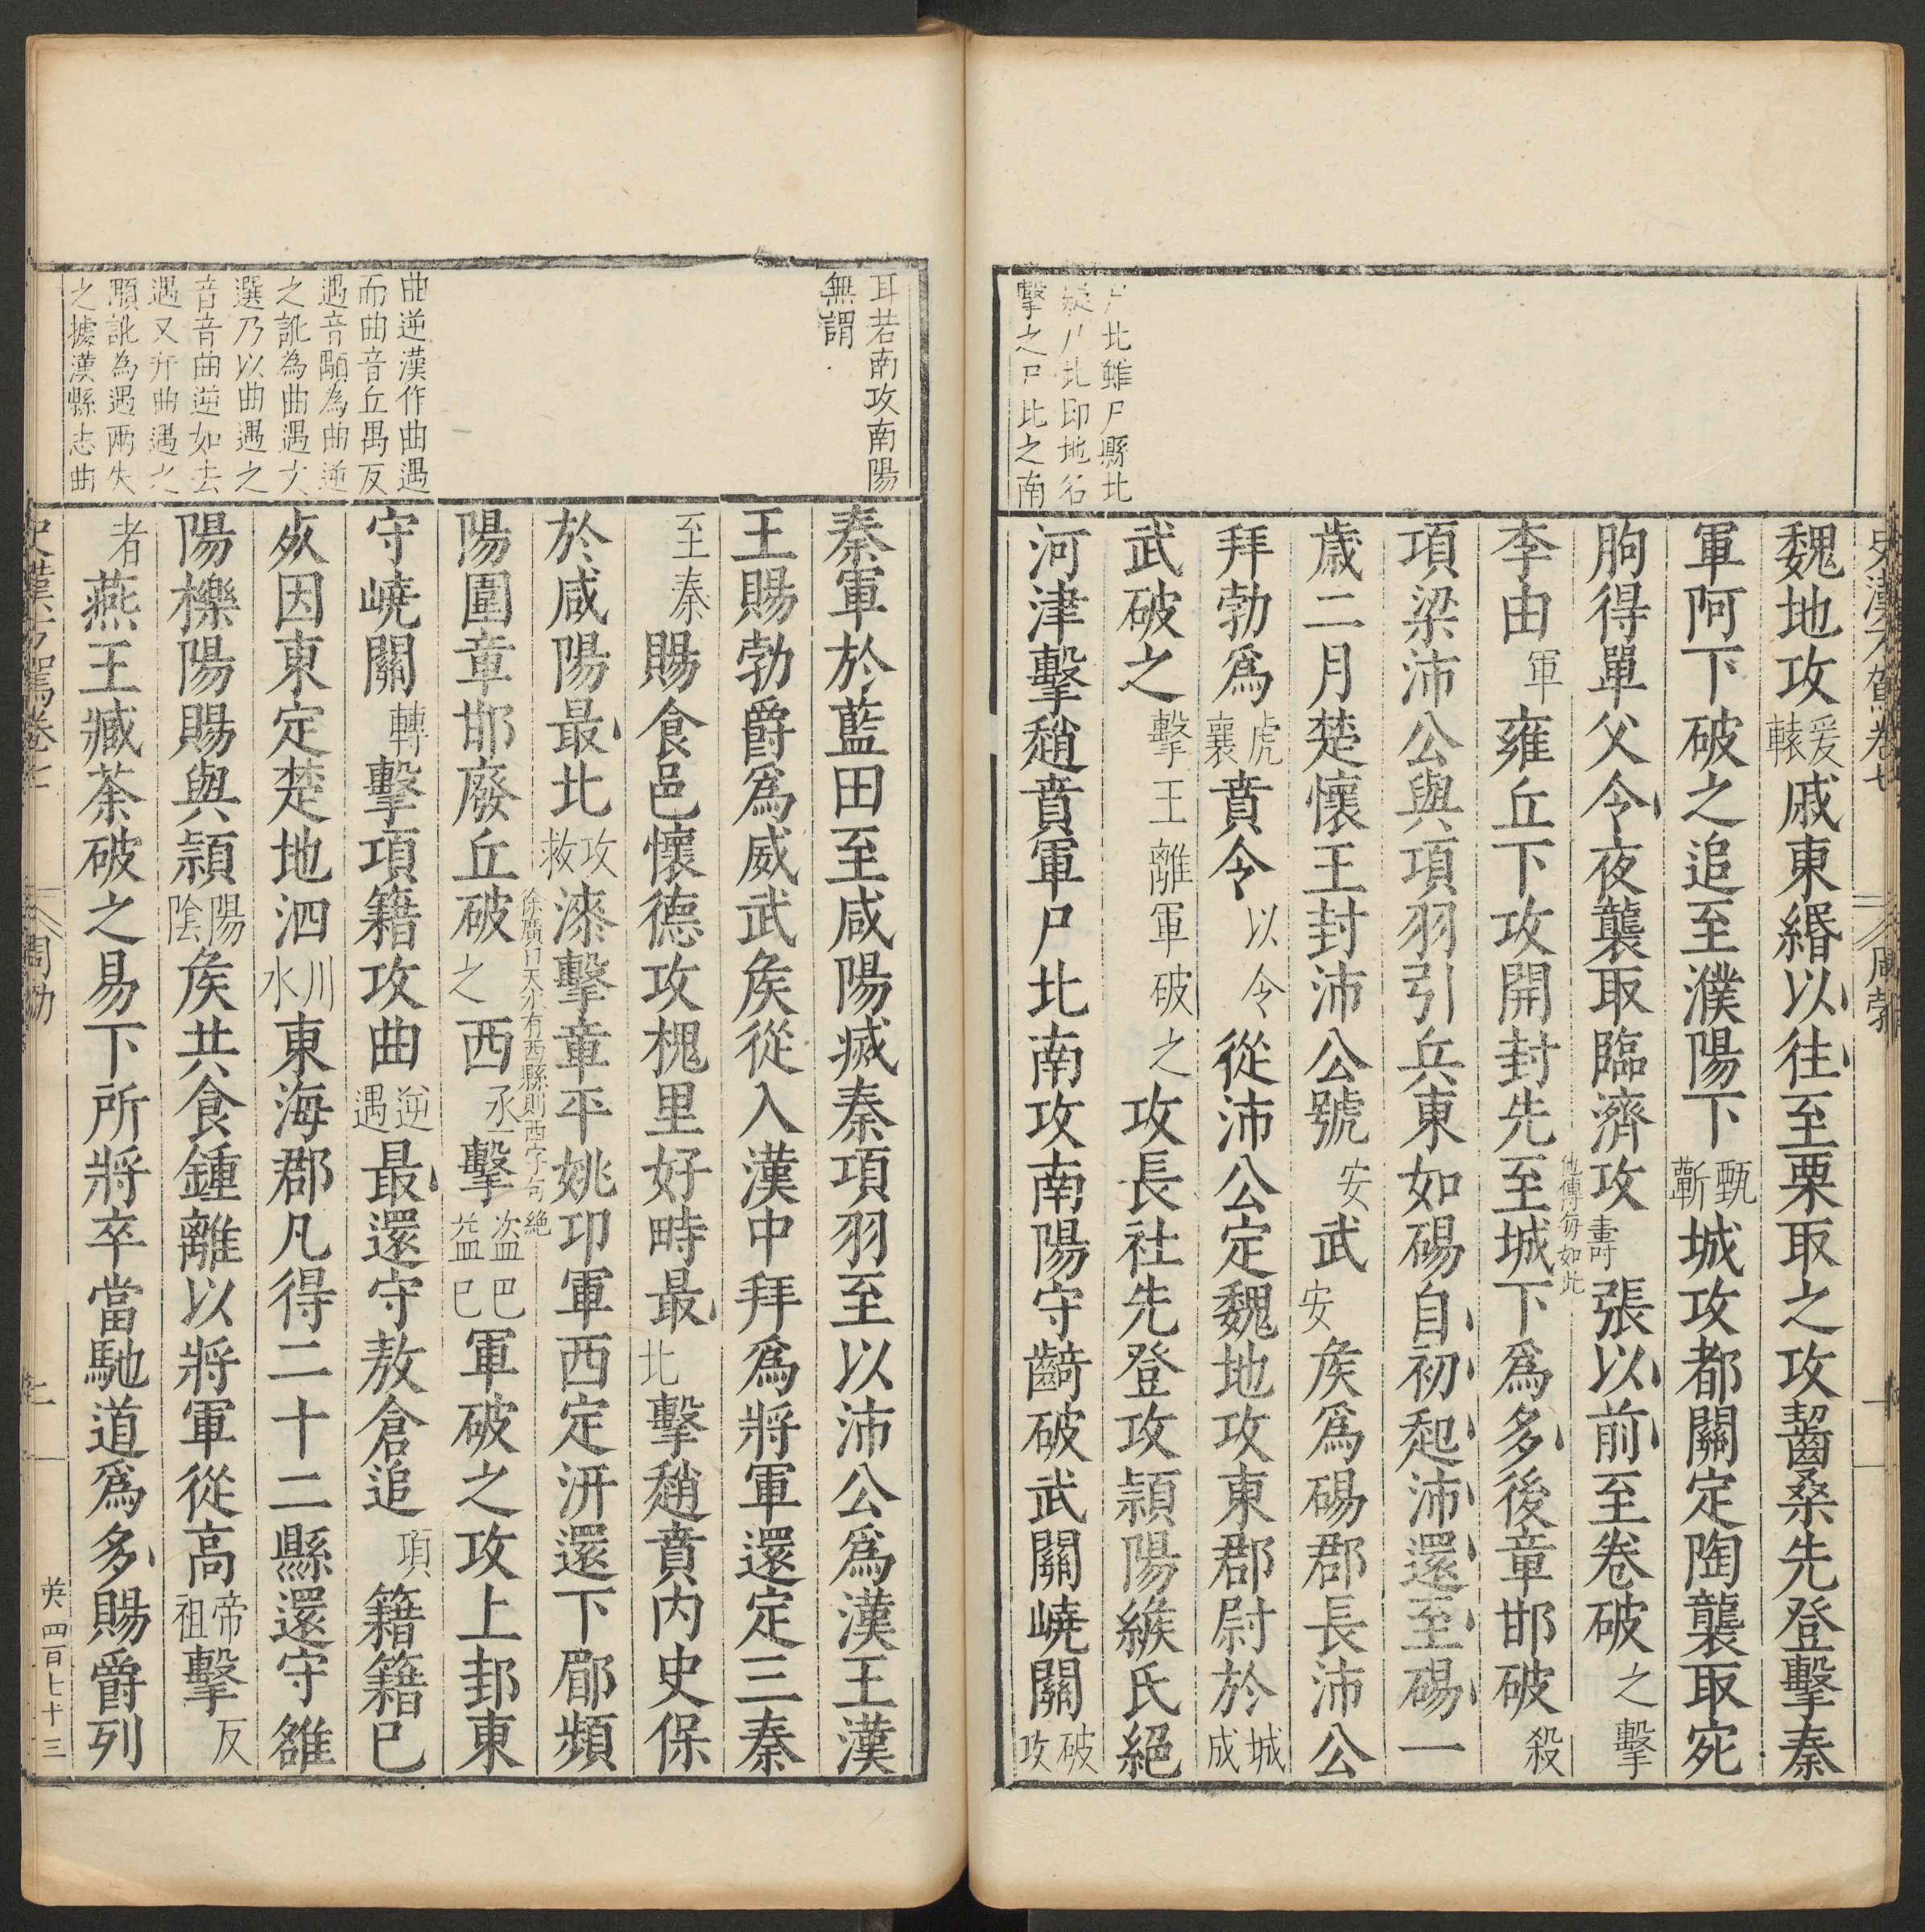 史漢方駕卷七
周勃
魏地攻爰轅戚東緡以往至栗取之攻齧桑先登擊秦
軍阿下破之追至濮陽下甄蘄城攻都關定陶襲取宛
朐得單父令夜襲取臨濟攻壽張以前至卷破之擊
李由軍雍丘下攻開封先至城下爲多後章邯破殺
他傳每如此
項梁沛公與項羽引兵東如碭自初起沛還至碭一
歲二月楚懷王封沛公號安武安矦爲碭郡長沛公
拜勃爲虎襄賁令以令從沛公定魏地攻東郡尉於城成
武破之擊王離軍破之攻長社先登攻潁陽緱氏絕
河津擊趙賁軍尸北南攻南陽守齮破武關嶢關破攻
尸北雖尸縣北
疑尸北即地名
擊之尸北之南
耳若南攻南陽
無謂
秦軍於藍田至咸陽滅秦項羽至以沛公爲漢王漢
王賜勃爵爲威武矦從入漢中拜爲將軍還定三秦
至秦賜食邑懷德攻槐里好畤最北擊趙賁內史保
於咸陽最北攻救漆擊章平姚卬軍西定汧還下郿頻
徐廣曰天水有西縣則西字句絕
陽圍章邯廢丘破之西丞擊盜益巴已軍破之攻上邽東
守嶢關轉擊項籍攻曲逆遇最還守敖倉追項籍籍已
死因東定楚地泗川水東海郡凡得二十二縣還守雒
陽櫟陽賜與潁陽陰矦共食鍾離以將軍從高帝祖擊反
者燕王臧荼破之易下所將卒當馳道爲多賜爵列
曲逆漢作曲遇
而曲音丘禺反
遇音顒為曲逆
之訛為曲遇大
選乃以曲遇之
音音曲逆如去
遇又并曲遇之
顒訛為遇兩失
之據漢縣志曲
史漢方駕卷七
周勃
二
英 四百七十三